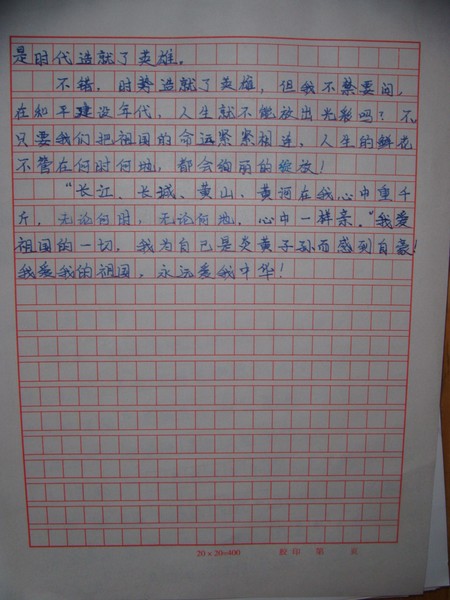 是时代造就了英雄。
不错,时势造就了英雄,但我不禁要问,
在和平建设年代,人生就不能放出光彩吗?不,
只要我们把祖国的命运紧紧相连,人生的鲜花
不管在何时何地,都会绚丽的绽放!
“长江、长城、黄山、黄河在我心中重千
斤,无论何时,无论何地,心中一样亲。”我爱
祖国的一切,我为自己是炎黄子孙而感到自豪!
我爱我的祖国,永远爱我中华!
20×20=400 校印 第 页